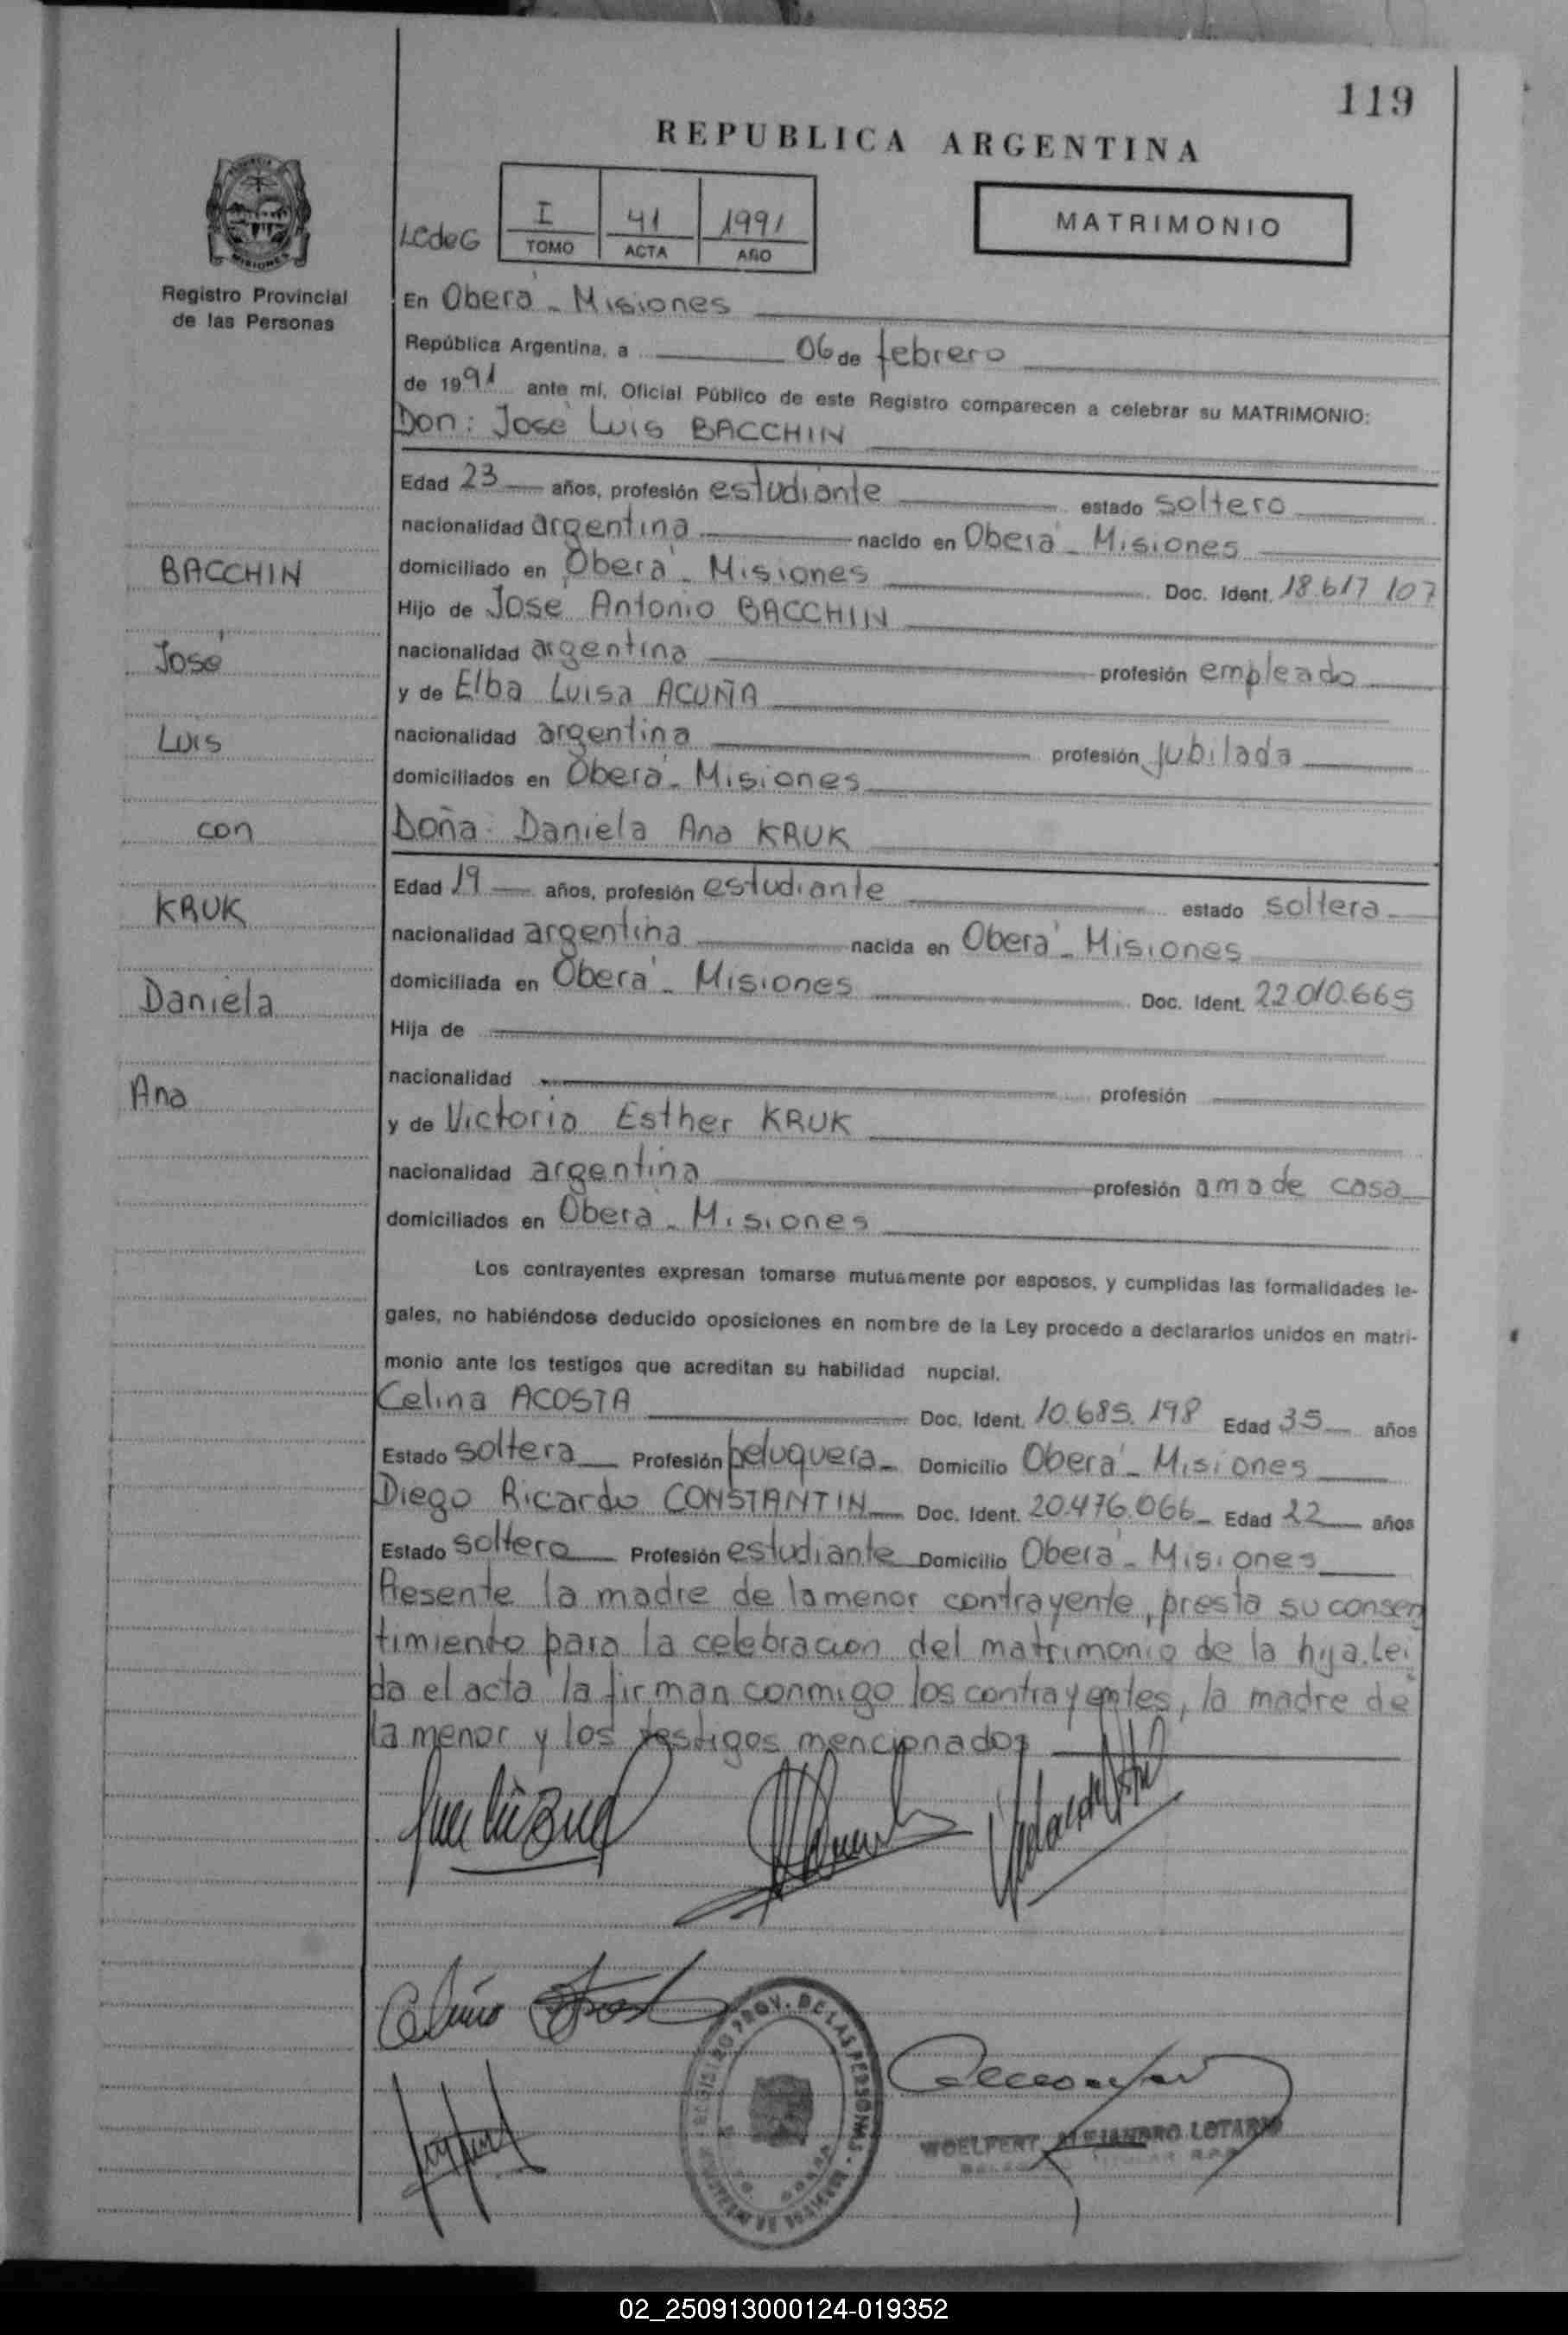 119
REPUBLICA ARGENTINA
LCdeG
I 41 1991
TOMO ACTA AÑO
MATRIMONIO
MISIONES
Registro Provincial
de las Personas
En Oberá - Misiones
República Argentina, a 06 de febrero
de 1991 ante mí, Oficial Público de este Registro comparecen a celebrar su MATRIMONIO:
Don: José Luis BACCHIN
Edad 23 años, profesión estudiante estado soltero
nacionalidad argentina nacido en Oberá - Misiones
domiciliado en Oberá - Misiones Doc. Ident. 18.617.107
Hijo de José Antonio BACCHIN
nacionalidad argentina profesión empleado
y de Elba Luisa ACUÑA
nacionalidad argentina profesión jubilada
domiciliados en Oberá - Misiones
Doña: Daniela Ana KRUK
Edad 19 años, profesión estudiante estado soltera
nacionalidad argentina nacida en Oberá - Misiones
domiciliada en Oberá - Misiones Doc. Ident. 22.010.665
Hija de
nacionalidad profesión
y de Victoria Esther KRUK
nacionalidad argentina profesión ama de casa
domiciliados en Oberá - Misiones
BACCHIN
José
Luis
con
KRUK
Daniela
Ana
Los contrayentes expresan tomarse mutuamente por esposos, y cumplidas las formalidades le-
gales, no habiéndose deducido oposiciones en nombre de la Ley procedo a declararlos unidos en matri-
monio ante los testigos que acreditan su habilidad nupcial.
Celina ACOSTA Doc. Ident. 10.685.198 Edad 35 años
Estado soltera Profesión peluquera Domicilio Oberá - Misiones
Diego Ricardo CONSTANTIN Doc. Ident. 20.476.066 Edad 22 años
Estado soltero Profesión estudiante Domicilio Oberá - Misiones
Presente la madre de la menor contrayente, presta su consen
timiento para la celebración del matrimonio de la hija. Leí
da el acta la firman conmigo los contrayentes, la madre de
la menor y los testigos mencionados
REGISTRO PROV. DE LAS PERSONAS
WOELFERT, ALEJANDRO LOTARIO
02_250913000124-019352